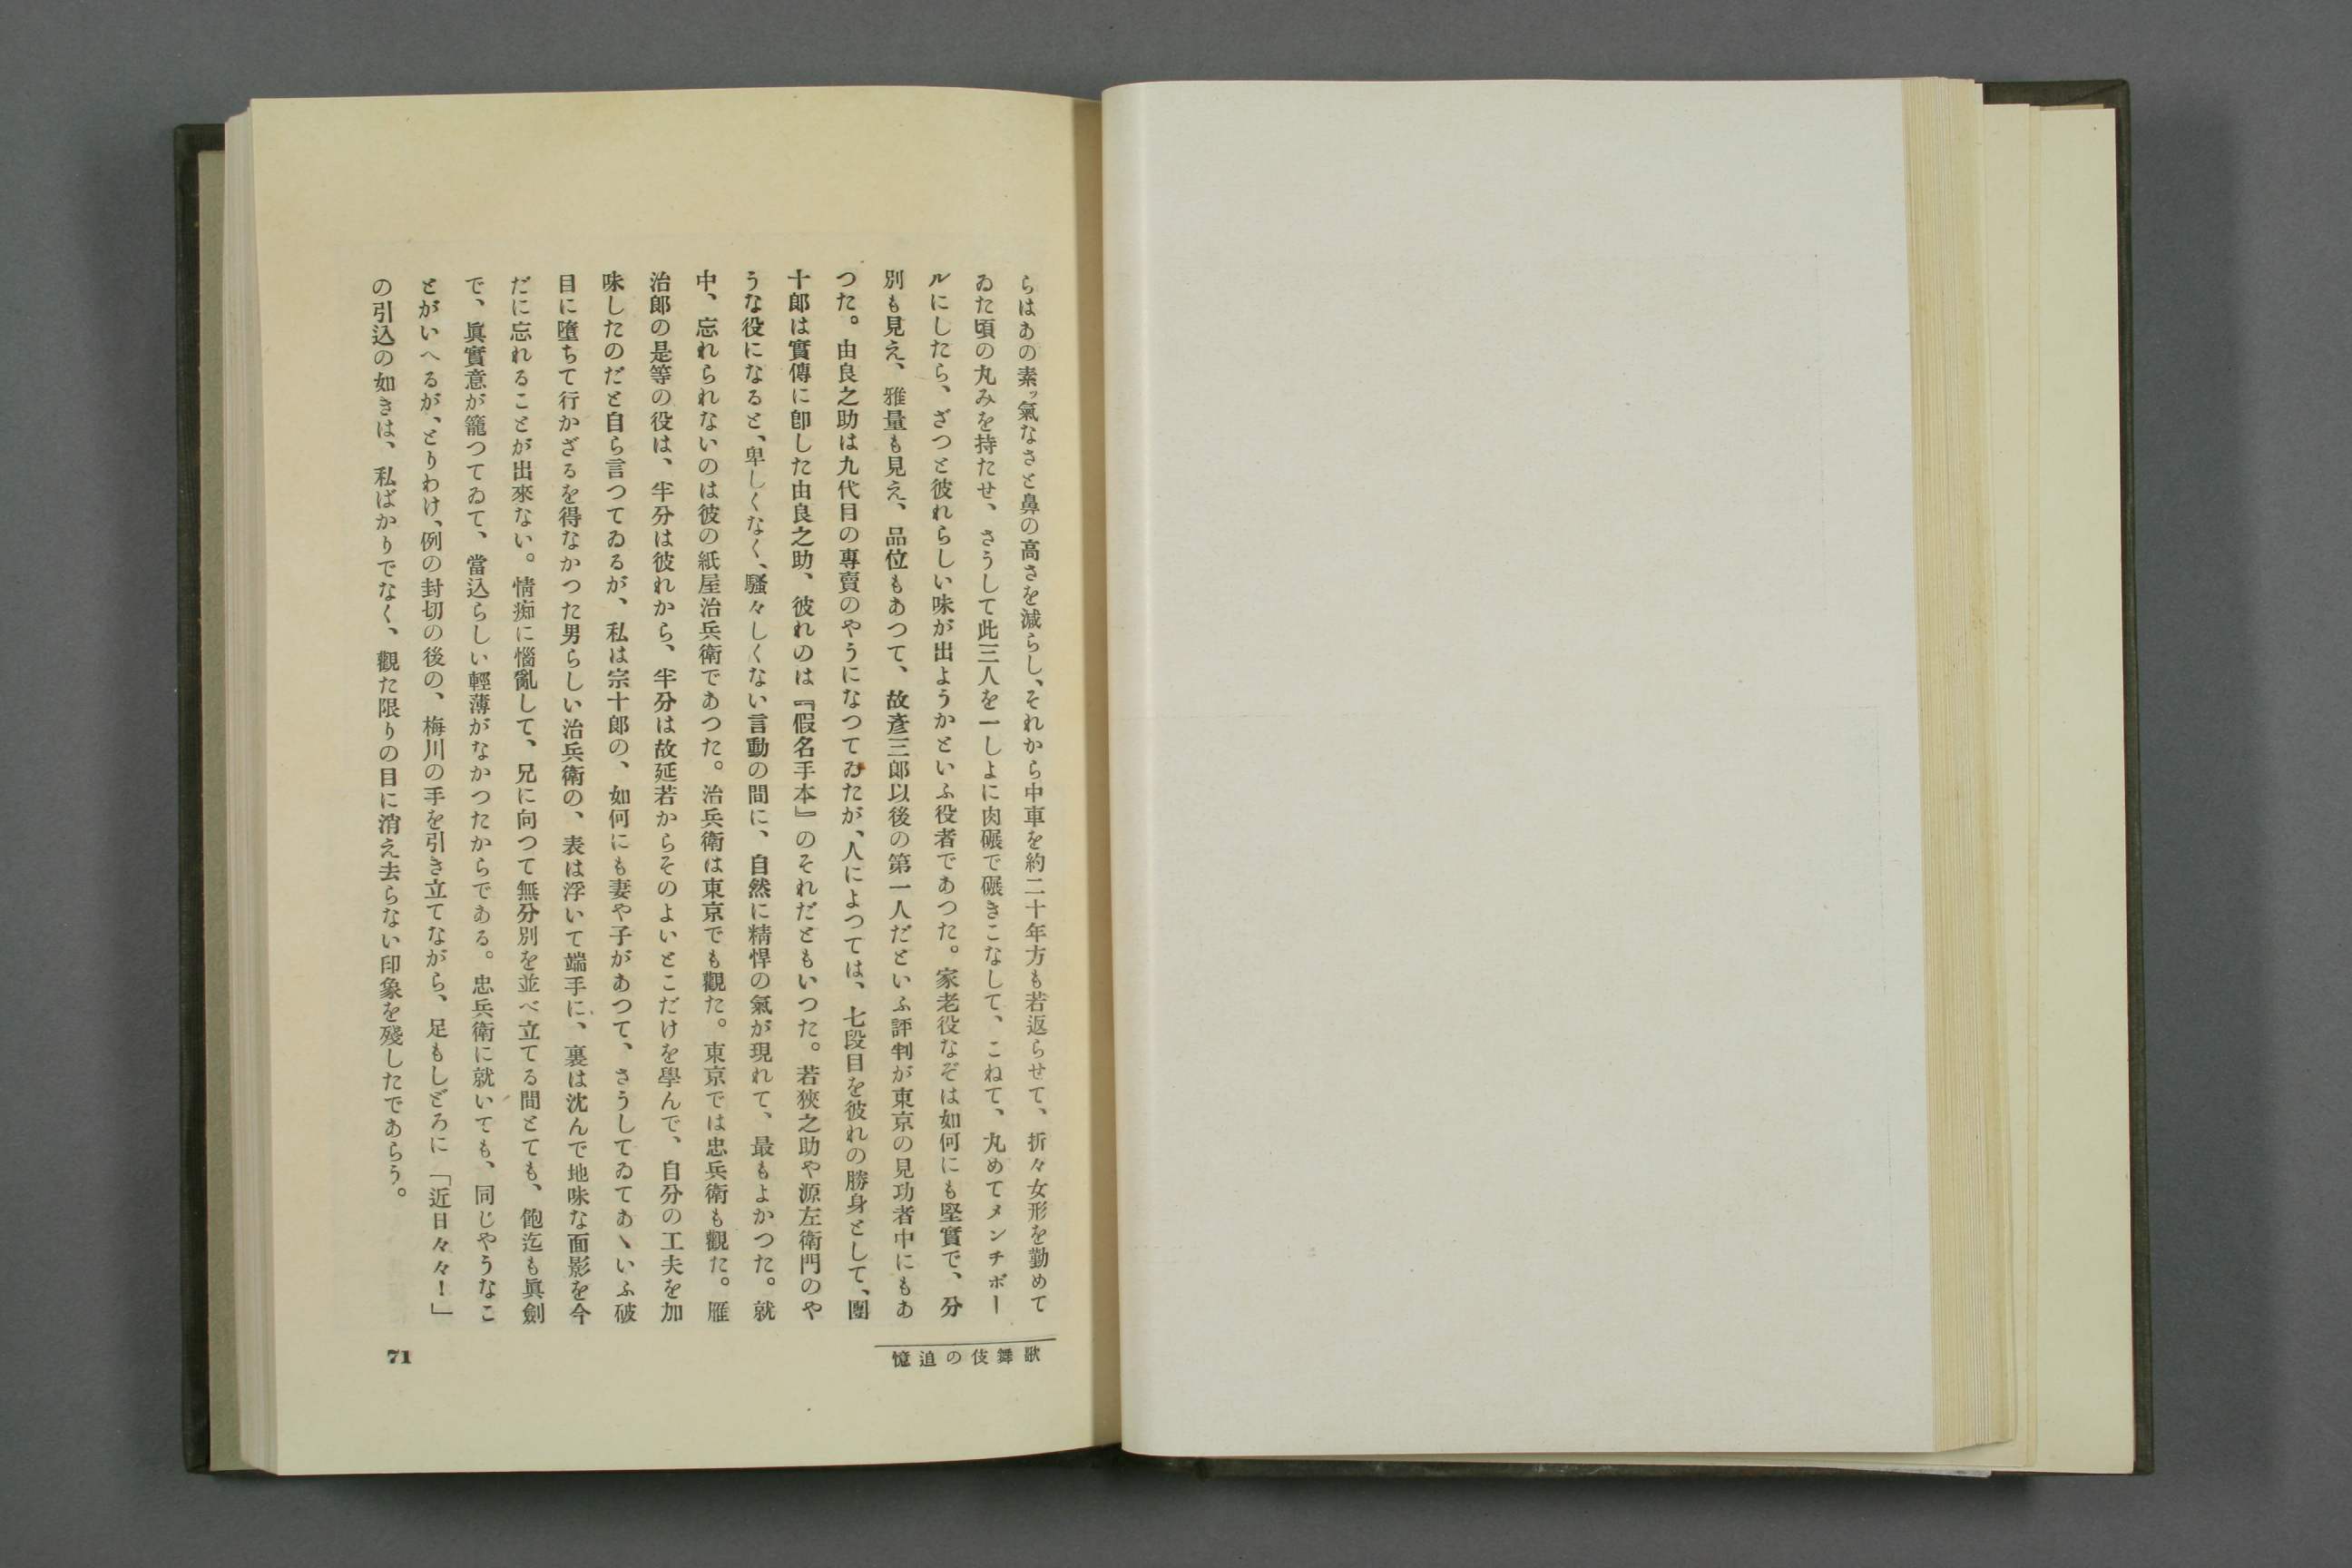 らはあの素ッ氣なさと鼻の高さを減らし、それから中車を約二十年方も若返らせて、折々女形を勤めて
ゐた頃の丸みを持たせ、さうして此三人を一しよに肉碾で碾きこなして、こねて、丸めてメンチボー
ルにしたら、ざつと彼れらしい味が出ようかといふ役者であつた。家老役なぞは如何にも堅實で、分
別も見え、雅量も見え、品位もあつて、故彥三郎以後の第一人だといふ評判が東京の見功者中にもあ
つた。由良之助は九代目の專賣のやうになつてゐたが、人によつては、七段目を彼れの勝身として、團
十郎は實傳に卽した由良之助、彼れのは『假名手本』のそれだともいつた。若狹之助や源左衛門のや
うな役になると、卑しくなく、騷々しくない言動の間に、自然に精悍の氣が現れて、最もよかつた。就
中、忘れられないのは彼の紙屋治兵衛であつた。治兵衛は東京でも觀た。東京では忠兵衛も觀た。雁
治郎の是等の役は、半分は彼れから、半分は故延若からそのよいとこだけを學んで、自分の工夫を加
味したのだと自ら言つてゐるが、私は宗十郎の、如何にも妻や子があつて、さうしてゐてあゝいふ破
目に墮ちて行かざるを得なかつた男らしい治兵衛の、表は浮いて端手に、裏は沈んで地味な面影を今
だに忘れることが出來ない。情痴に惱亂して、兄に向つて無分別を並べ立てる間とても、飽迄も眞劍
で、眞實意が籠つてゐて、當込らしい輕薄がなかつたからである。忠兵衛に就いても、同じやうなこ
とがいへるが、とりわけ、例の封切の後の、梅川の手を引き立てながら、足もしどろに「近日々々！」
の引込の如きは、私ばかりでなく、觀た限りの目に消え去らない印象を殘したであらう。
歌舞伎の追憶
71